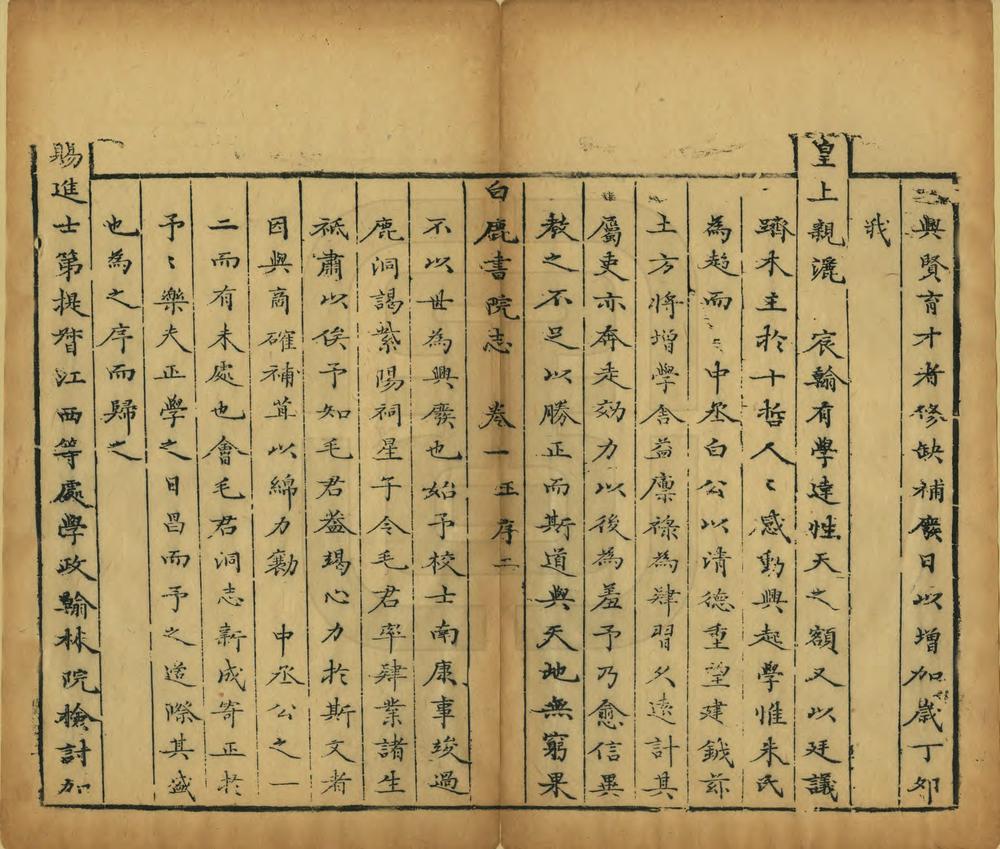 興賢育才者修缺補廢日以增加歲丁卯
我
皇上親灑 宸翰有學達性天之額又以廷議
躋朱主於十哲人〻感動興起學惟朱氏
為趨而 中丞白公以清德重望建鉞茲
土方將增學舍益廩祿為肄習久遠計其
屬吏亦奔走効力以後為羞予乃愈信異
教之不足以勝正而斯道與天地無窮果
白鹿書院志 卷一 正序二
不以世為興廢也始予校士南康事竣過
鹿洞謁紫陽祠星子令毛君率肄業諸生
祗肅以俟予知毛君葢竭心力於斯文者
因與商確補葺以綿力勷 中丞公之一
二而有未處也會毛君洞志新成寄正於
予〻樂夫正學之日昌而予之適際其盛
也為之序而歸之
賜進士第提督江西等處學政翰林院檢討加